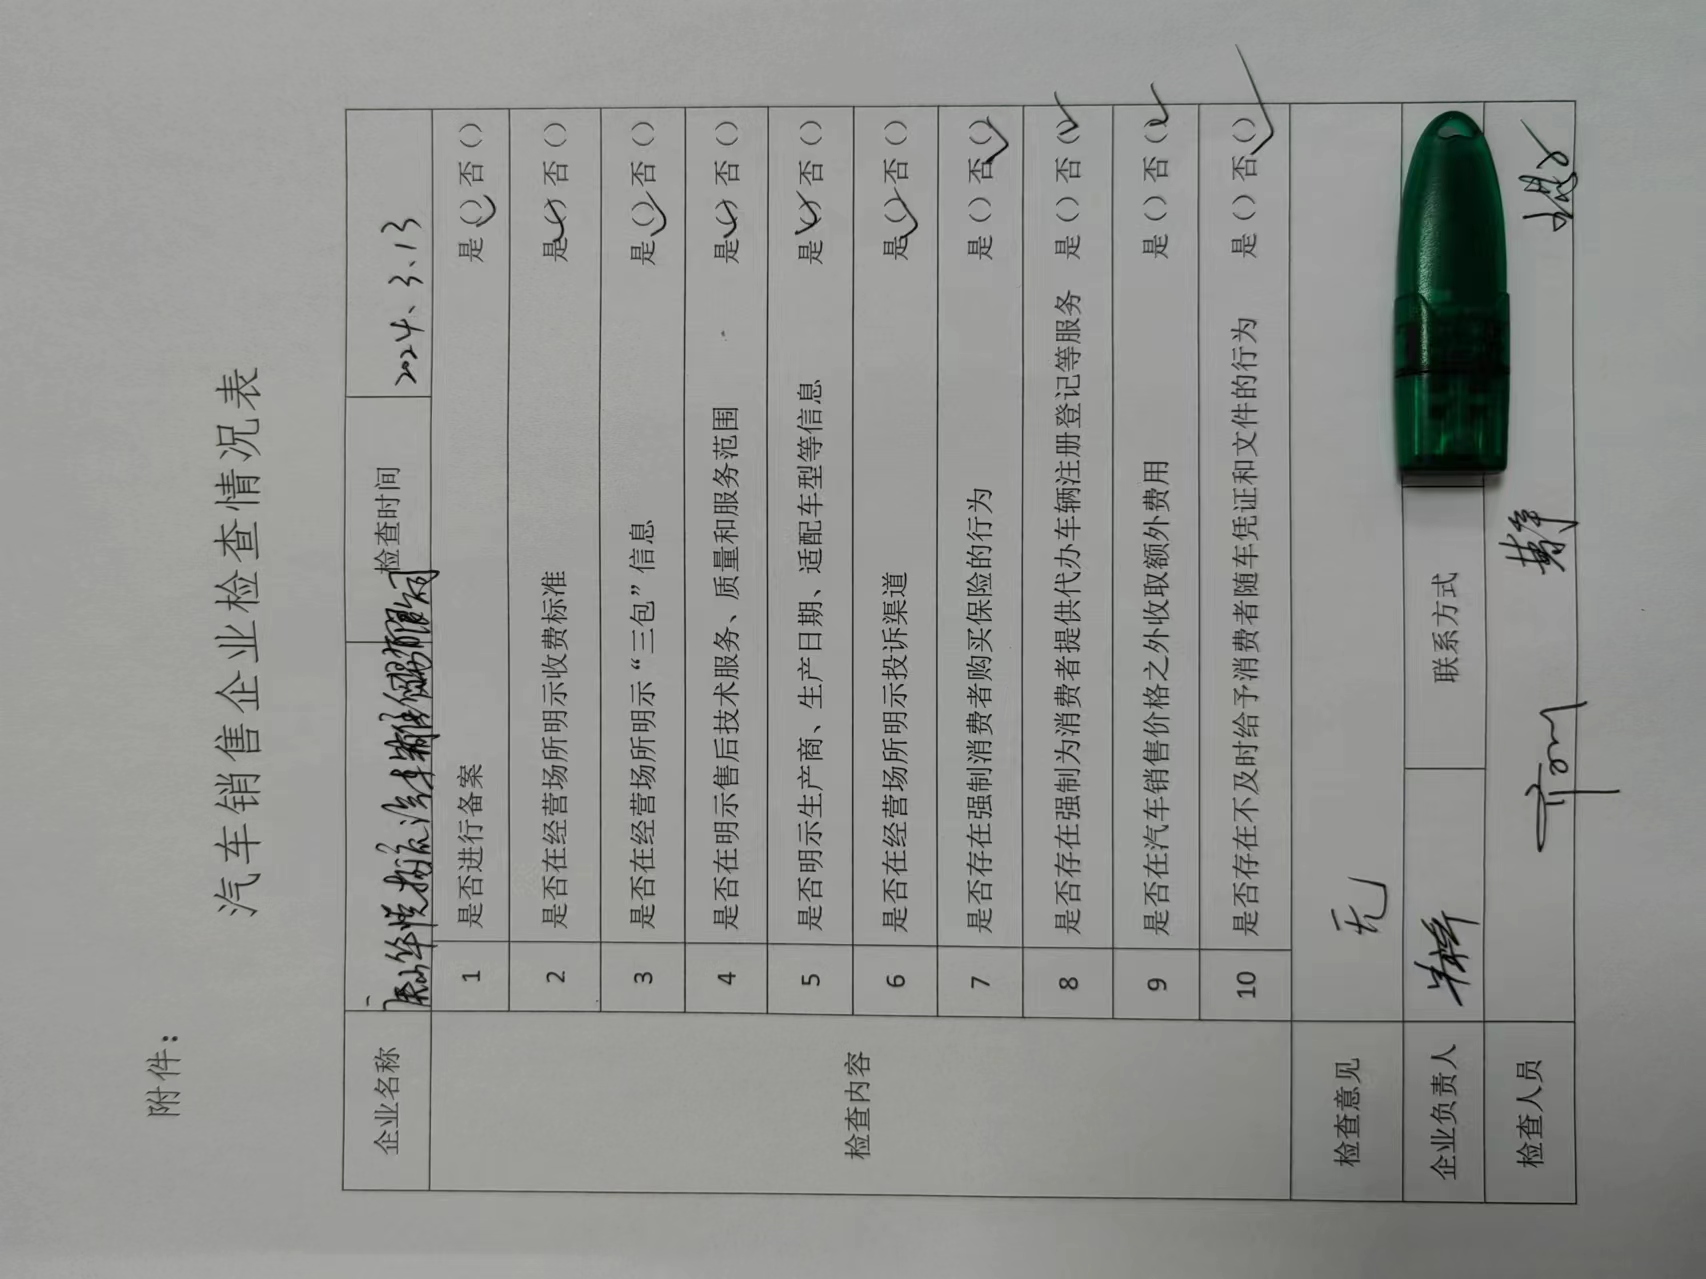 附件：
汽车销售企业检查情况表
企业名称 汽车销售服务有限公司 检查时间 2024、3、13
检查内容
1 是否进行备案 是（✓）否（）
2 是否在经营场所明示收费标准 是（✓）否（）
3 是否在经营场所明示“三包”信息 是（✓）否（）
4 是否在明示售后技术服务、质量和服务范围 是（✓）否（）
5 是否明示生产商、生产日期、适配车型等信息 是（✓）否（）
6 是否在经营场所明示投诉渠道 是（✓）否（）
7 是否存在强制消费者购买保险的行为 是（）否（✓）
8 是否存在强制为消费者提供代办车辆注册登记等服务 是（）否（✓）
9 是否在汽车销售价格之外收取额外费用 是（）否（✓）
10 是否存在不及时给予消费者随车凭证和文件的行为 是（）否（✓）
检查意见 无
企业负责人 联系方式
检查人员